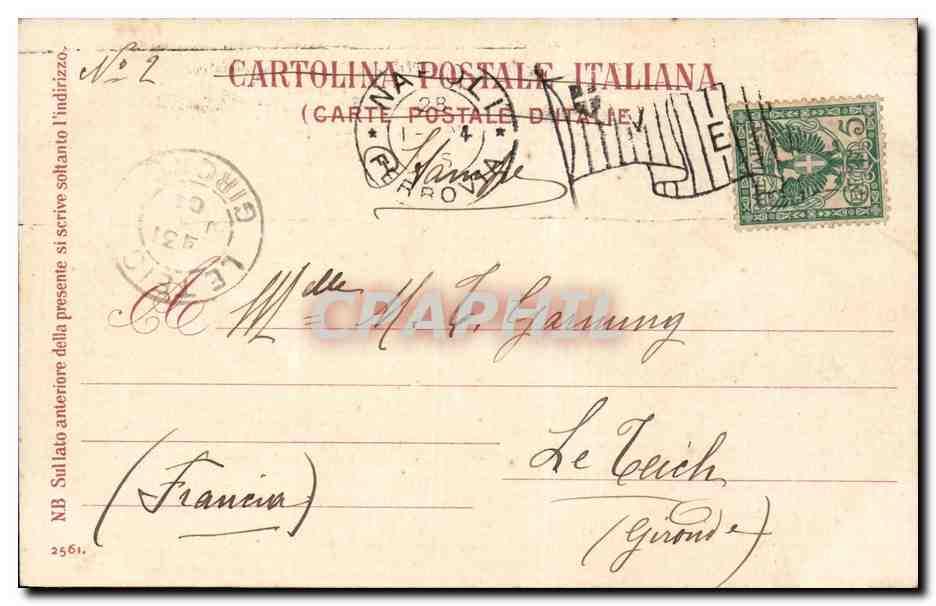 Nº 2
CARTOLINA POSTALE ITALIANA
(CARTE POSTALE D'ITALIE)
NAPOLI
28
FERROVIA
5
LE TEICH
GIRONDE
04
CPAPHIL
Mlle M. L.
Le Teich
(Gironde)
(Francia)
N.B Sul lato anteriore della presente si scrive soltanto l'indirizzo.
2561.